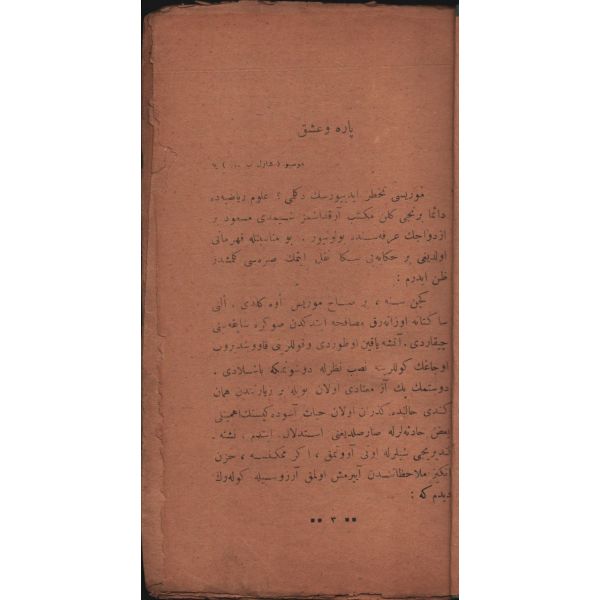 پاره و عشق
موسیو (شارل ب ...) یه
موریسی تخطر ایدییورسك دكلمی ؟ علوم ریاضیه‌ده
دائما برنجی كلن مكتب آرقداشمز شیمدی مسعود بر
ازدواجك عرفه‌سنده بولونیور . بو مناسبتله قهرمانی
اولدیغی بر حكایه‌یی سكا نقل ایتمك صره‌سی كلمشدر
ظن ایدرم :
كچن سنه ، بر صباح موریس اوه كلدی . الی
ساكتانه اوزانه‌رق مصافحه ایتدكدن صوكره
چیقاردی . آتشه یاقین اوطوردی و قوللرینی قاووشدیروب
اوجاغك كوللرینه نصب نظرله دوشونمكه باشلادی .
دوستمك پك آز معتادی اولان بویله بر زیارتندن همان
كندی حالنده كذران اولان حیات آسوده‌كیسنك اهمیتلی
بعض حادثه‌لرله صارصلدیغنی استدلال ایتدم . نشئه
بریجی شیلرله اونی آووتمق ، اكر ممكنسه ، حزن
انكیز ملاحظاتندن آییرمش اولمق آرزوسیله كوله‌رك
دیدم كه :
٣